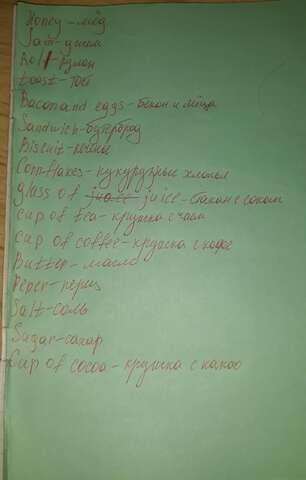 Honey-мёд
Jam-джем
Roll-рулон
toast-тост
Bacon and eggs-бекон и яйца
Sandwich-бутерброд
Biscuit-печенье
Cornflakes-кукурузные хлопья
glass of juice-стакан с соком
cup of tea-кружка с чаем
cup of coffee-кружка с кофе
Butter-масло
Peper-перец
Salt-соль
Sugar-сахар
Cup of cocoa-кружка с какао